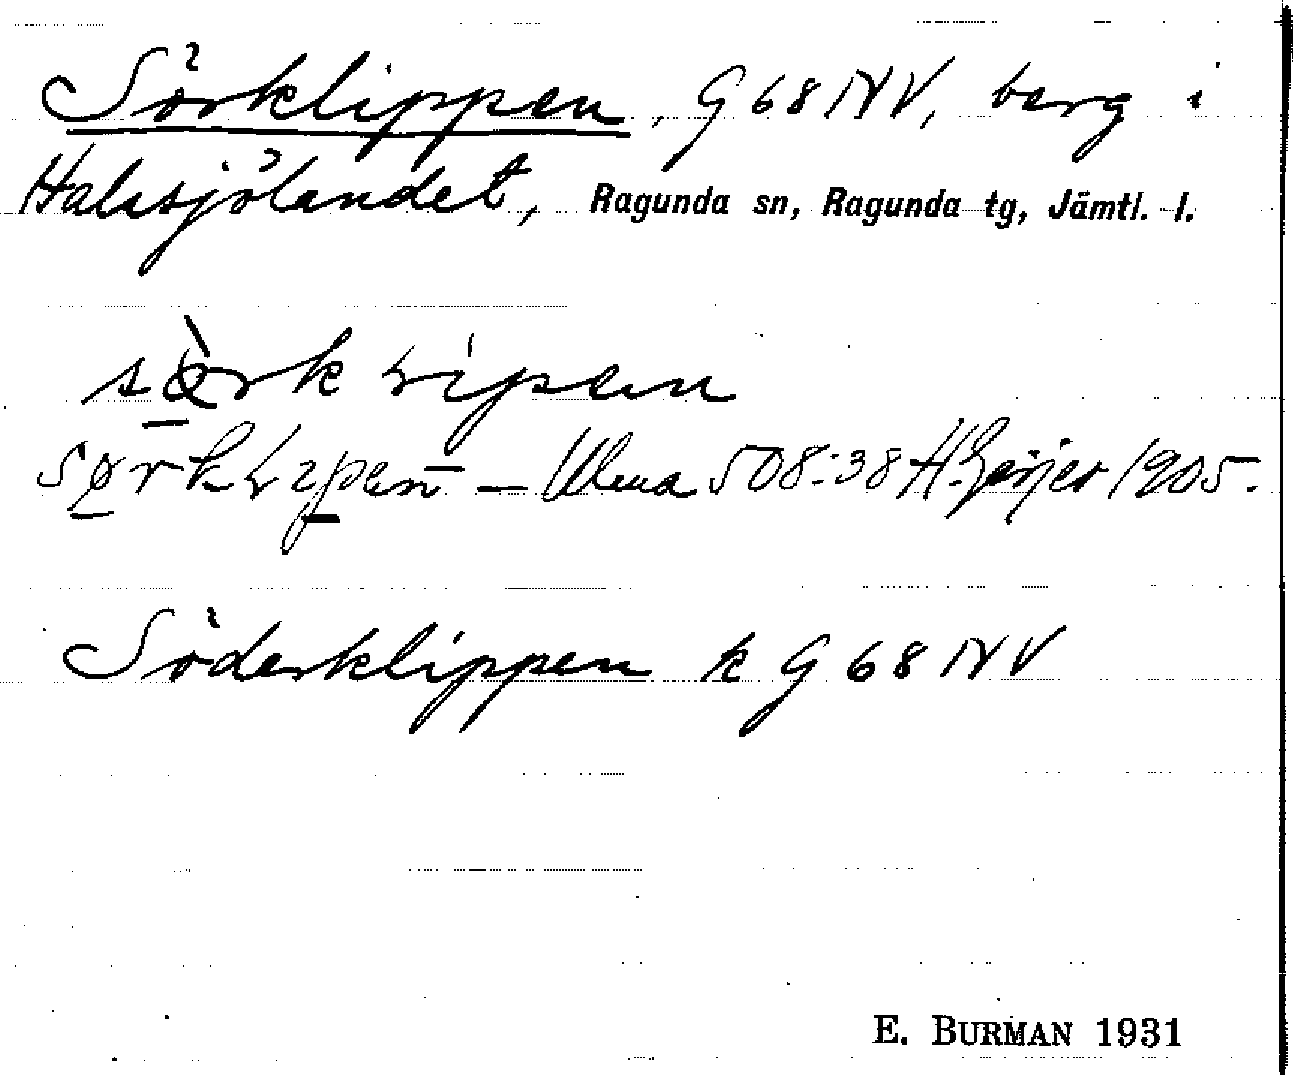 Sörklippen, G 68 NV, berg i
Halasjölandet, Ragunda sn, Ragunda tg, Jämtl. l.
Ulma 508:38 H. Geijer 1905.
Söderklippen k G 68 NV
E. BURMAN 1931